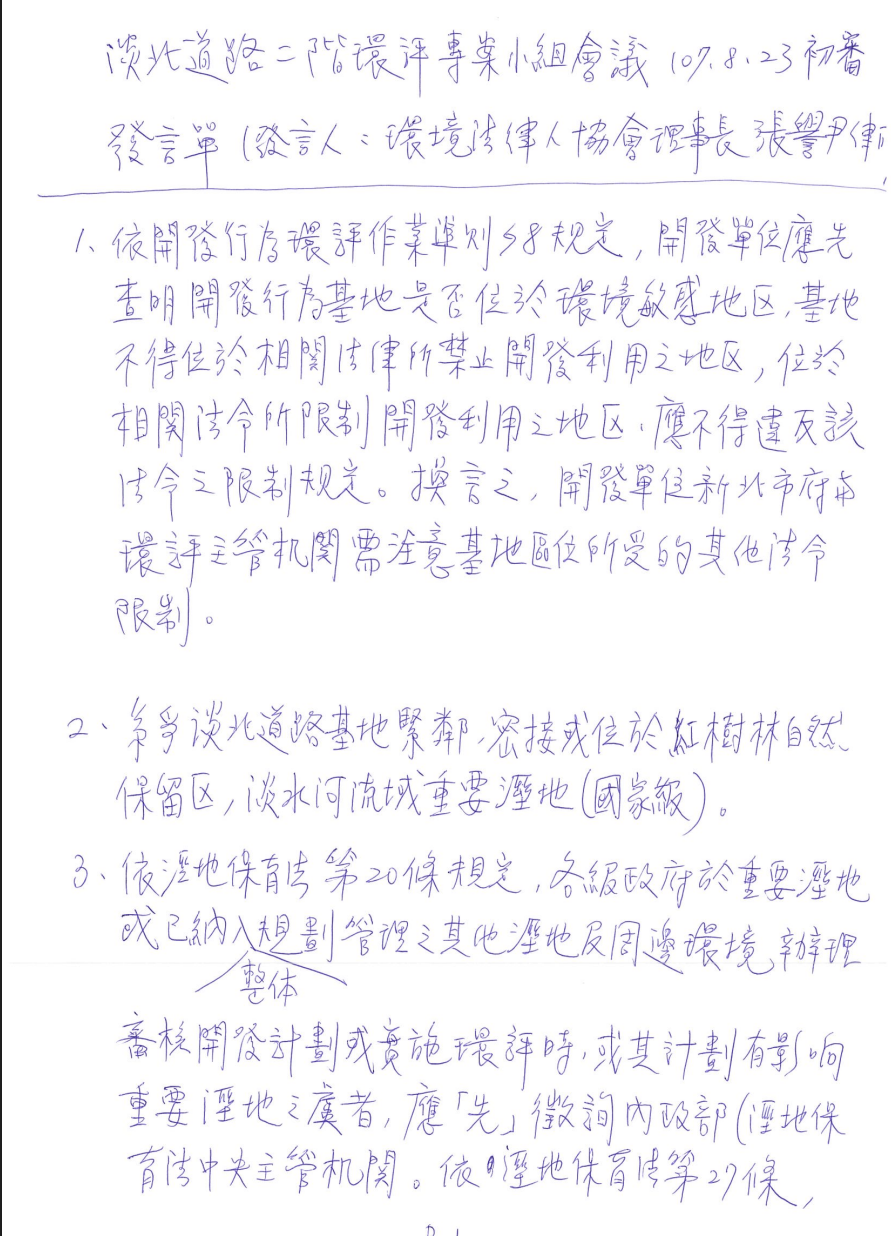 淡北道路二階環評專案小組會議 107.8.23初審
發言單(發言人:環境法律人協會理事長 張譽尹律師
1、依開發行為環評作業準則§8規定,開發單位應先
查明開發行為基地是否位於環境敏感地区,基地
不得位於相関法律所禁止開發利用之地区,位於
相関法令所限制開發利用之地区,應不得違反該
法令之限制規定。換言之,開發單位新北市府與
環評主管机関需注意基地區位所受的其他法令
限制。
2、系爭淡北道路基地緊鄰、密接或位於紅樹林自然
保留区,淡水河流域重要溼地(國家級)。
3、依溼地保育法第20條規定,各級政府於重要溼地
或已納入整体規劃管理之其他溼地及周邊環境辦理
審核開發計劃或實施環評時,或其計劃有影响
重要溼地之虞者,應「先」徵詢內政部(溼地保
育法中央主管机関。依溼地保育法第27條,
P.1